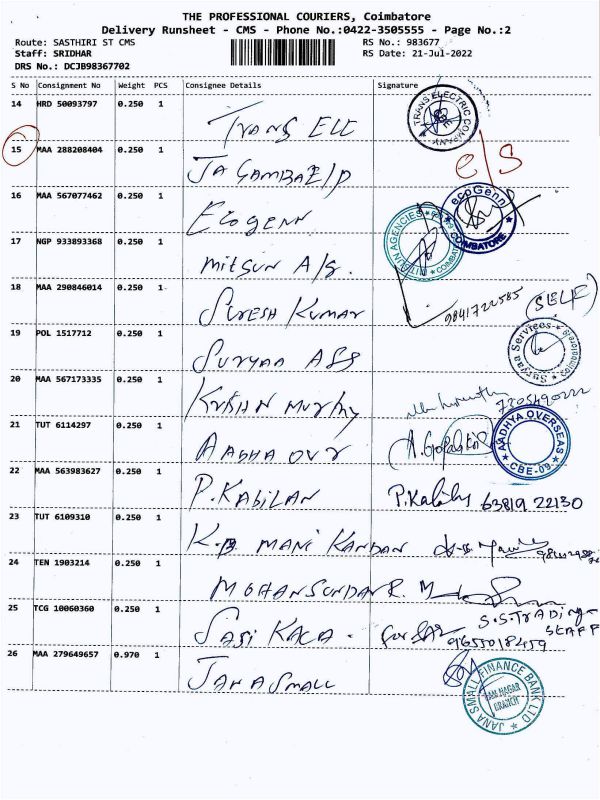 THE PROFESSIONAL COURIERS, Coimbatore
Delivery Runsheet - CMS - Phone No.:0422-3505555 - Page No.:2
Route: SASTHIRI ST CMS RS No.: 983677
Staff: SRIDHAR RS Date: 21-Jul-2022
DRS No.: DCJB98367702
S No Consignment No Weight PCS Consignee Details Signature
14 HRD 50093797 0.250 1 TRANS ELE TRANS ELECTRIC COMPANY
15 MAA 288208404 0.250 1 JAGAMBA E/P e/s
16 MAA 567077462 0.250 1 ECOGENN ecoGenn COIMBATORE
17 NGP 933893368 0.250 1 MITSUN A/S. AGENCIES
18 MAA 290846014 0.250 1 SURESH KUMAR 9841722585 (SELF)
19 POL 1517712 0.250 1 SURYAA ASS Suryaa Services
20 MAA 567173335 0.250 1 KRISHN MURTHY
21 TUT 6114297 0.250 1 AADHA OVR AADHYA OVERSEAS CBE-09.
22 MAA 563983627 0.250 1 P. KABILAN P. 63819 22130
23 TUT 6109310 0.250 1 K.B. MANI KANDAN
24 TEN 1903214 0.250 1 MOHANSUNDAR R.
25 TCG 10060360 0.250 1 SASI KALA. S.S. TRADING STAFF
9655018459
26 MAA 279649657 0.970 1 JANA SMALL JANA SMALL FINANCE BANK LTD BRANCH